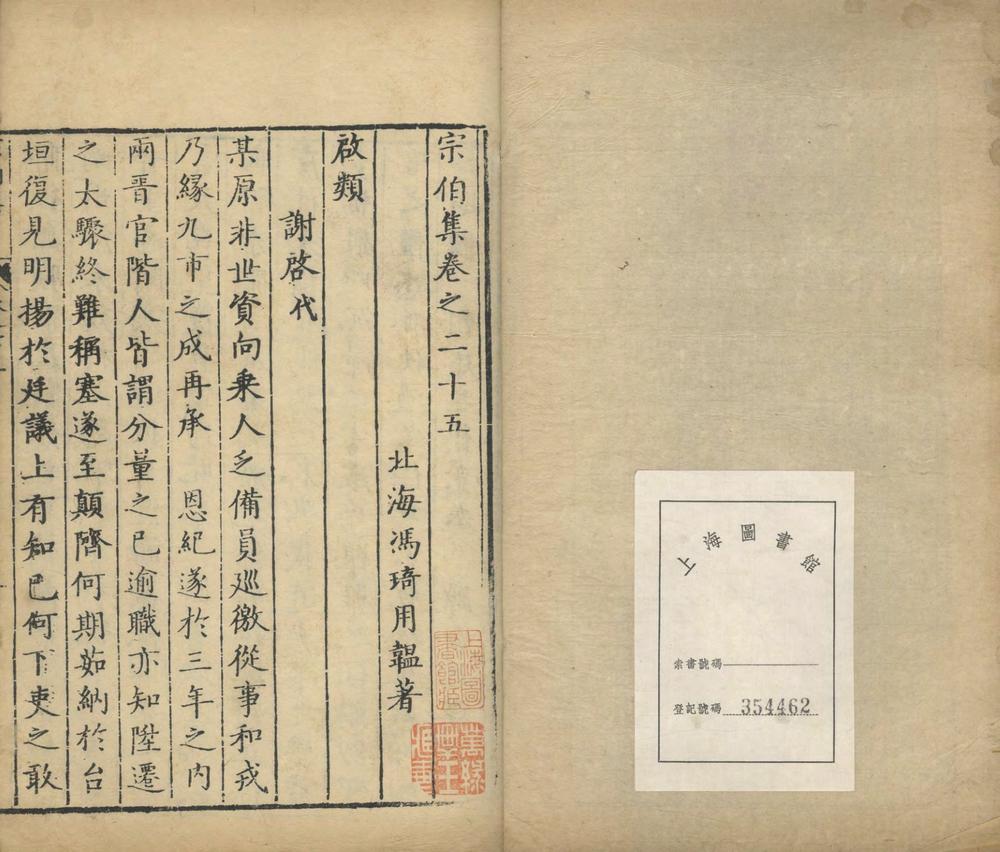 宗伯集卷之二十五
北海馮琦用韞著
啟類
謝啓代
某原非世資向乘人乏備員巡徼從事和戎
乃緣九市之成再承　恩紀遂於三年之內
兩晉官階人皆謂分量之已逾職亦知陞遷
之太驟終難稱塞遂至顛隮何期茹納於台
垣復見明揚於廷議上有知己何下吏之敢
上海圖書館藏
上海圖書館
索書號碼
登記號碼 354462